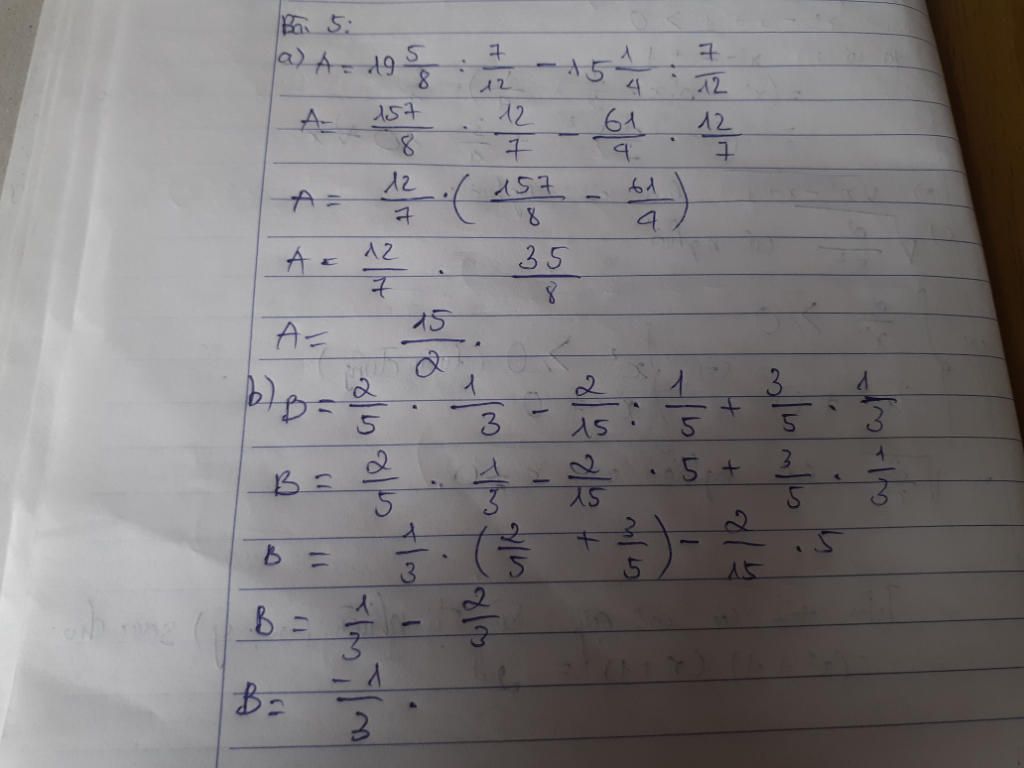 Bài 5:
a) A = 19 5/8 : 7/12 - 15 1/4 : 7/12
A = 157/8 . 12/7 - 61/4 . 12/7
A = 12/7 . ( 157/8 - 61/4 )
A = 12/7 . 35/8
A = 15/2 .
b) B = 2/5 . 1/3 - 2/15 : 1/5 + 3/5 . 1/3
B = 2/5 . 1/3 - 2/15 . 5 + 3/5 . 1/3
B = 1/3 . ( 2/5 + 3/5 ) - 2/15 . 5
B = 1/3 - 2/3
B = -1/3 .